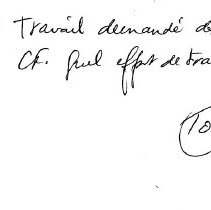 Travail demandé de
CF. Quel effort de tra
To